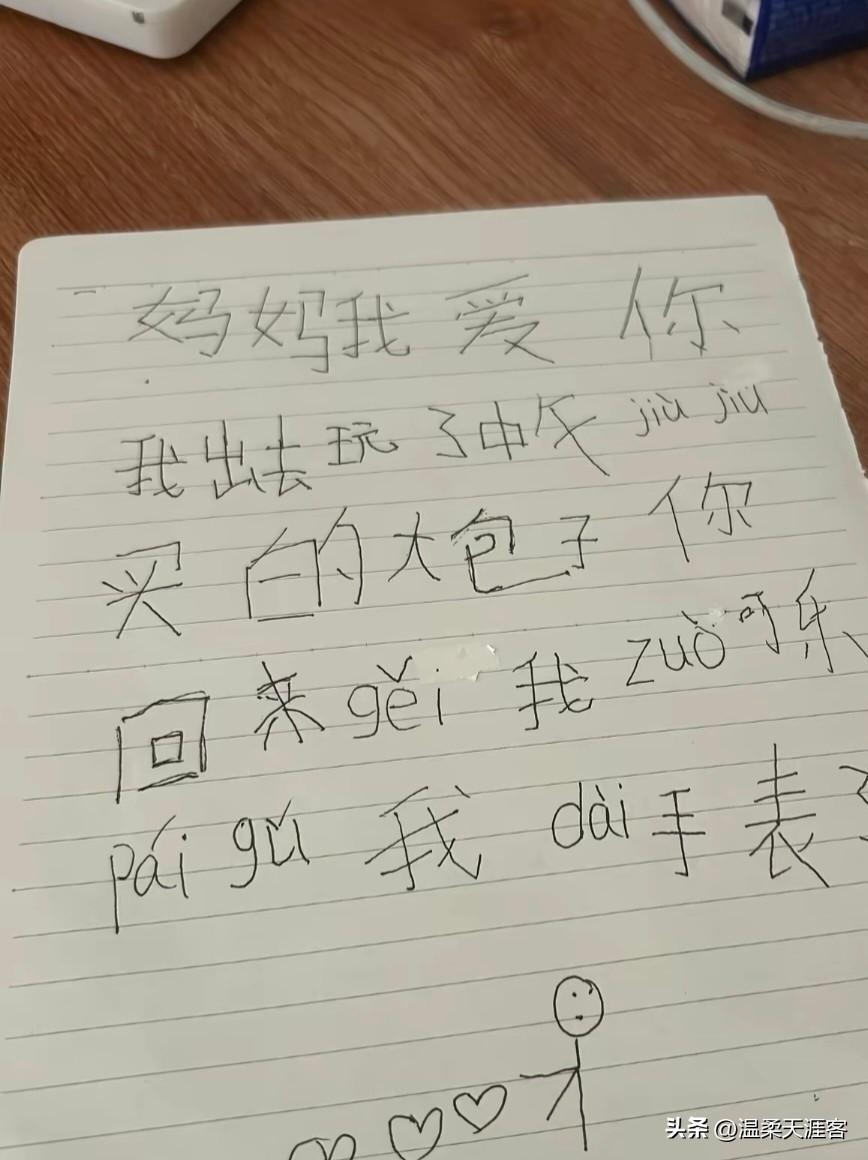 妈妈我爱你
我出去玩了中午 jiù jiu
买的大包子你
回来gěi我zuò可乐
pái gǔ 我 dài 手表了
头条 @温柔天涯客